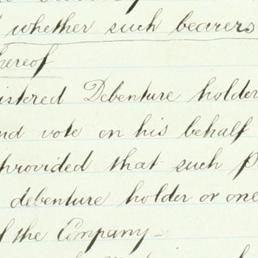 whether such bearers
hereof
istered Debenture holder
nd vote on his behalf
provided that such p
debenture holder or one
f the Company